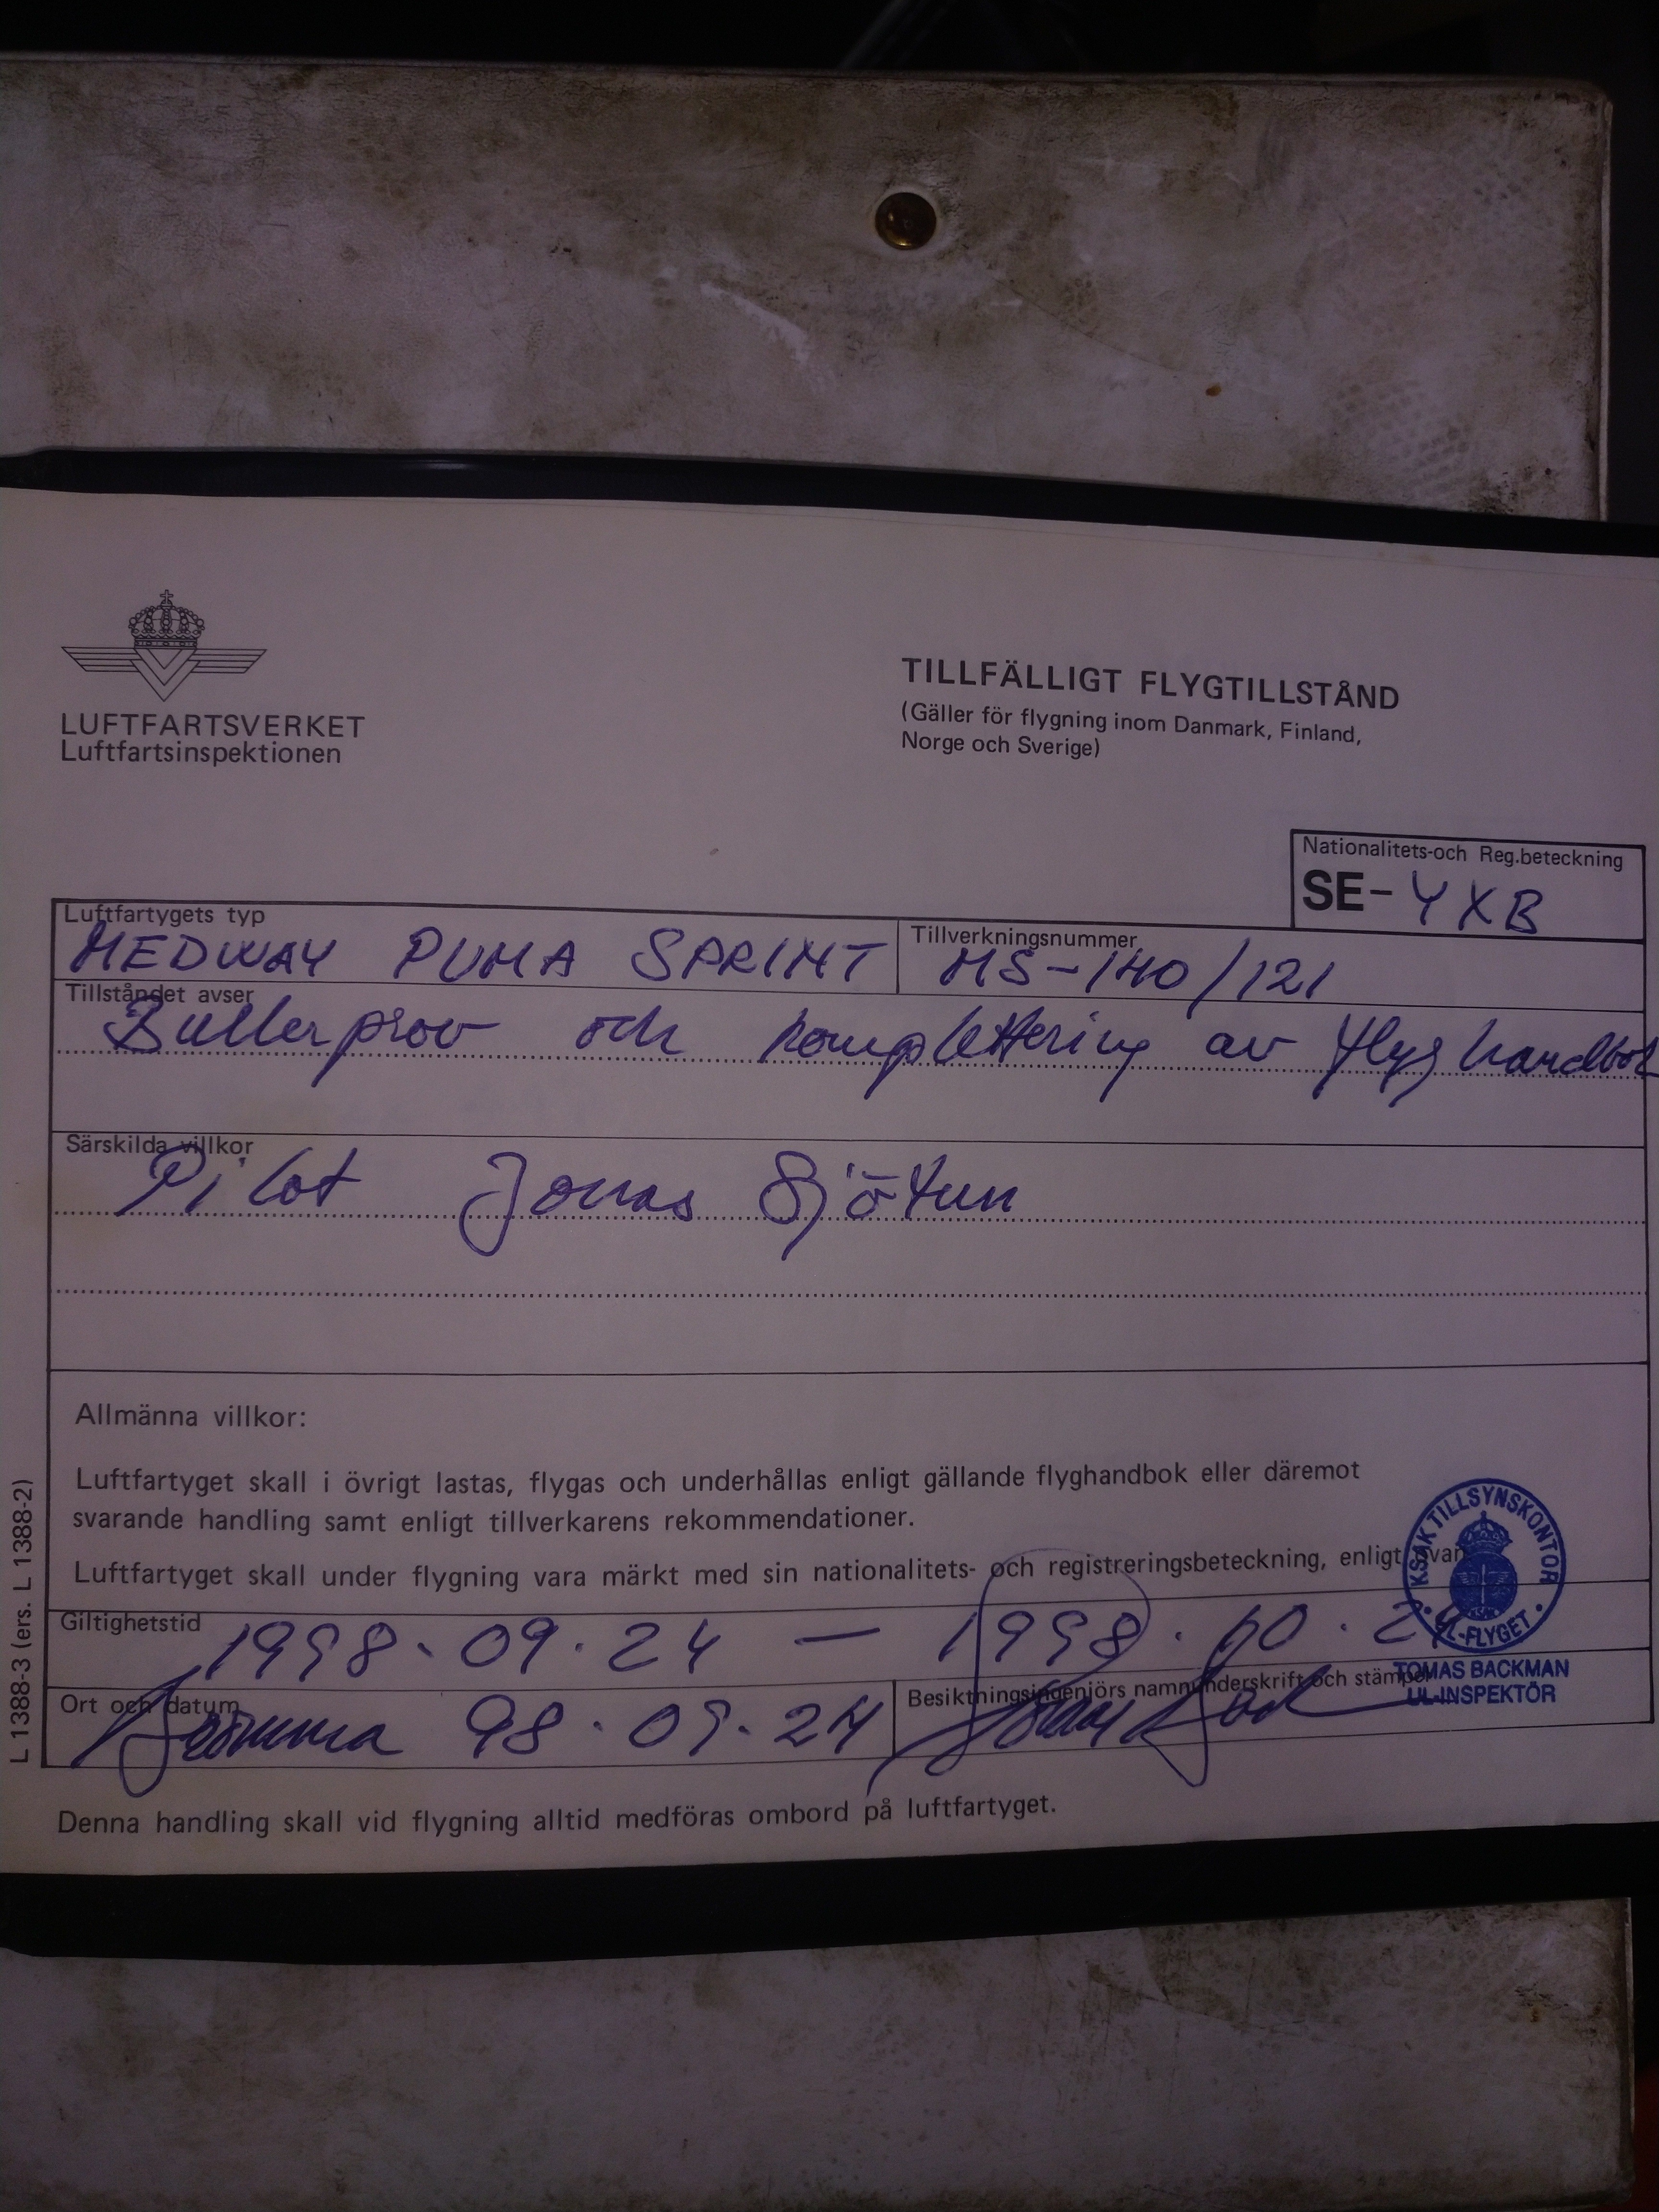 LUFTFARTSVERKET
Luftfartsinspektionen
TILLFÄLLIGT FLYGTILLSTÅND
(Gäller för flygning inom Danmark, Finland,
Norge och Sverige)
Nationalitets-och Reg.beteckning
SE-YXB
Luftfartygets typ
MEDWAY PUMA SPRINT
Tillverkningsnummer
MS-140/121
Tillståndet avser
Bullerprov och komplettering av flyghandbok
Särskilda villkor
Pilot Jonas
Allmänna villkor:
Luftfartyget skall i övrigt lastas, flygas och underhållas enligt gällande flyghandbok eller däremot
svarande handling samt enligt tillverkarens rekommendationer.
Luftfartyget skall under flygning vara märkt med sin nationalitets- och registreringsbeteckning, enligt ovan
KSAK TILLSYNSKONTOR
UL-FLYGET
Giltighetstid
1998.09.24 — 1998.10.24
TOMAS BACKMAN
UL-INSPEKTÖR
Ort och datum
Bromma 98.09.24
Besiktningsingenjörs namnunderskrift och stämpel
Denna handling skall vid flygning alltid medföras ombord på luftfartyget.
L 1388-3 (ers. L 1388-2)